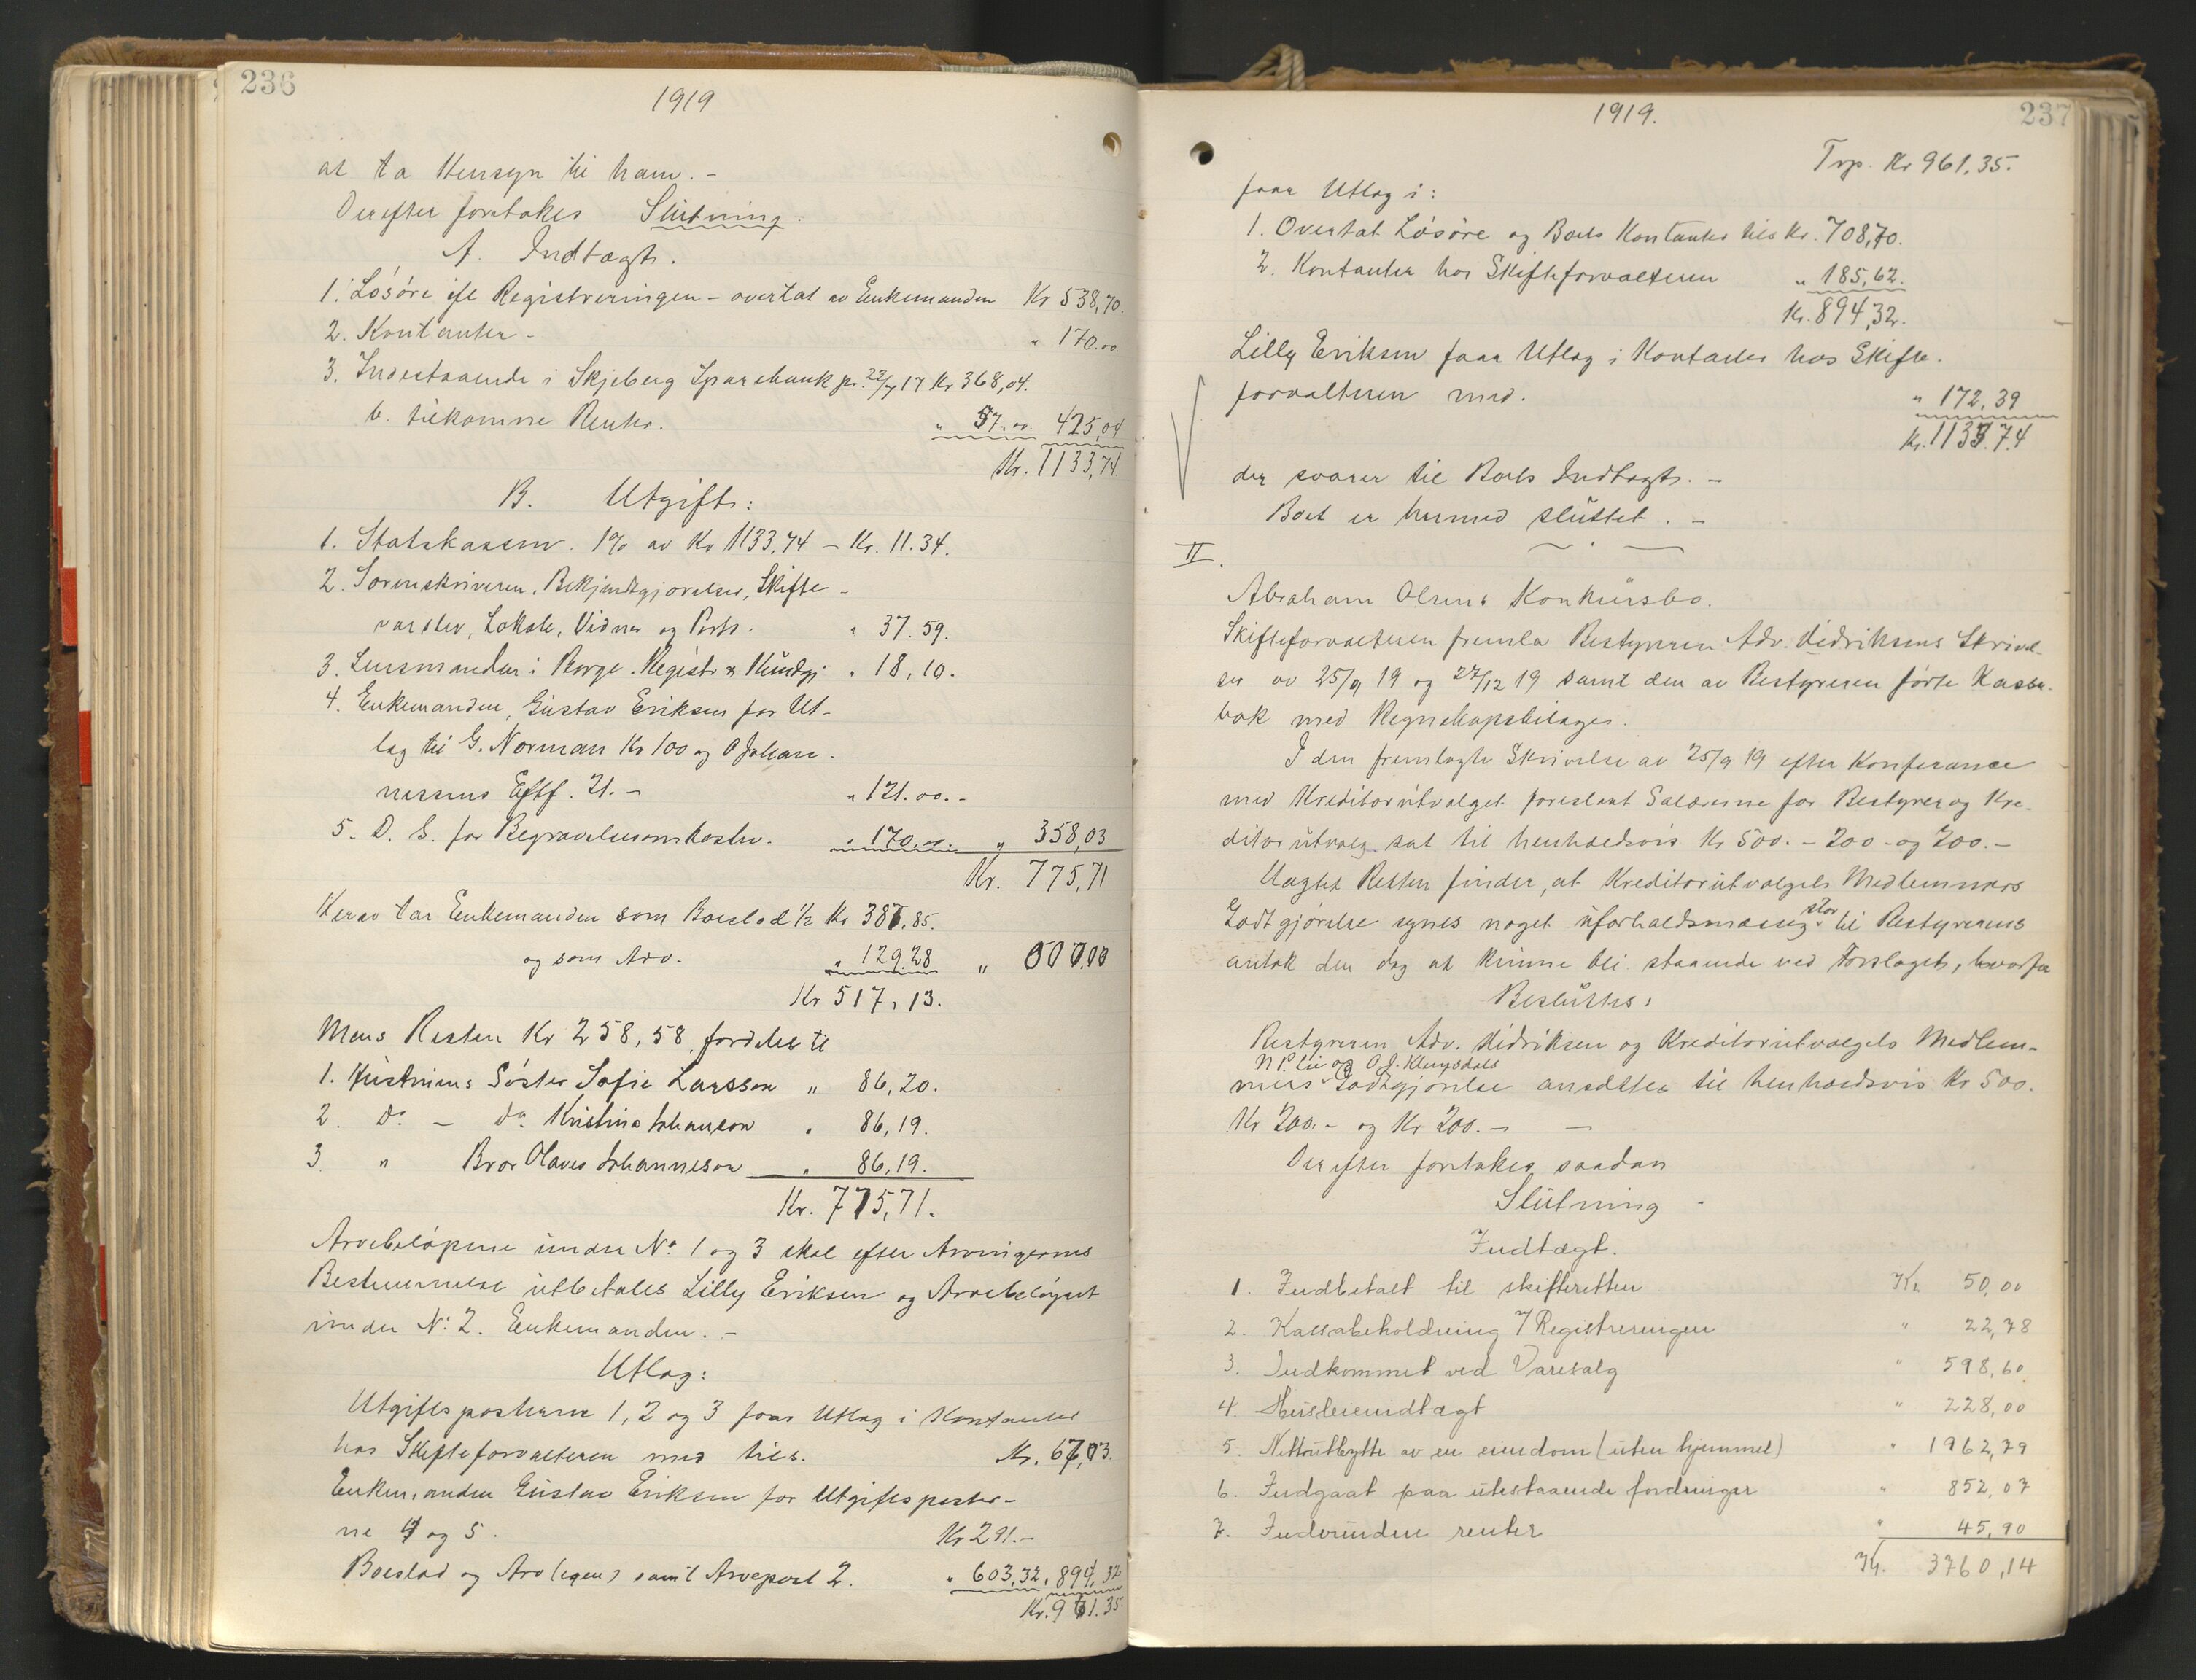 236
1919
at ta Hensyn til ham. -
Derefter foretokes Slutning.
A. Indtægt.
1. Løsøre ifl Registreringen - overtat av Enkemanden Kr 538,70.
2. Kontanter - " 170.00
3. Indestaaende i Skjeberg Sparebank pr. 23/7 17 Kr 368,04.
b. tilkomne Renter. " 57.00 425,04
Kr. 1133,74
B. Utgift:
1. Statskassen. 1% av Kr 1133,74 - Kr. 11.34.
2. Sorenskriveren. Bekjendtgjørelser, Skifte-
varsler, Lokale, Vidner og Porto. " 37.59.
3. Lensmanden i Borge. Registr & Kundgj. " 18,10.
4. Enkemanden, Gustav Eriksen for Ut-
læg til G. Norman Kr 100 og O Johan-
nessens Eftf. 21.- " 121.00.-
5. D. S. for Begravelsesomkostn. " 170.00. " 358,03
Kr. 775,71
Herav tar Enkemanden som Boeslod 1/2 Kr 387,85.
og som Arv. " 129.28 "
Kr 517,13.
Mens Resten Kr 258,58 fordeles til
1. Hustruens Søster Sofie Larsson " 86,20.
2. Do - do Kristina Johanson " 86,19.
3. " Bror Olaves Johanneson " 86,19.
Kr. 775,71.
Arvebeløpene under No 1 og 3 skal efter Arvingernes
Bestemmelse utbetales Lilly Eriksen og Arvebeløpet
under No 2. Enkemanden. -
Utlæg:
Utgiftsposterne 1, 2 og 3 faar Utlæg i Kontanter
hos Skifteforvalteren med tils. Kr. 67,03.
Enkemanden Gustav Eriksen for Utgiftsposter-
ne 4 og 5. Kr 291.-
Boeslod og Arv (egen) samt Arvepost 2. " 603,32, 894,32
Kr. 961.35
237
1919.
Trp. Kr 961,35.
faar Utlæg i:
1. Overtat Løsøre og Boets Kontanter tils Kr. 708,70.
2. Kontanter hos Skifteforvalteren " 185,62.
Kr. 894,32.
Lilly Eriksen faar Utlæg i Kontanter hos Skifte-
forvalteren med. " 172,39
Kr. 1133.74
der svarer til Boets Indtægt. -
Boet er hermed sluttet. -
II.
Abraham Olsens Konkursbo.
Skifteforvalteren fremla Bestyreren Adv. Didriksens Skrivel-
ser av 25/9 19 og 27/12 19 samt den av Bestyreren førte Kasse-
bok med Regnskapsbilager.
I den fremlagte Skrivelse av 25/9 19 efter Konferance
med Kreditorutvalget foreslaat Salærerne for Bestyrer og Kre-
ditorutvalg sat til henholdsvis Kr 500.- 200.- og 200.-
Uagtet Retten finder, at Kreditorutvalgets Medlemmers
Godtgjørelse synes noget uforholdsmæssig stor til Bestyrerens
antok den dog at kunne bli staaende ved Forslaget, hvorfor
Besluttes:
Bestyreren Adv. Didriksen og Kreditorutvalgets Medlem-
N P. Lie og O J. Klengsdals
mers Godtgjørelse ansættes til henholdsvis Kr 500.
Kr 200.- og Kr 200.- -
Derefter foretokes saadan
Slutning
Indtægt.
1. Indbetalt til skifteretten Kr. 50,00
2. Kassabeholdning v/ Registreringen " 22,78
3. Indkommet ved Varesalg " 598,60
4. Husleieindtægt " 228,00
5. Nettoutbytte av en eiendom (uten hjemmel) " 1962,79
6. Indgaat paa utestaaende fordringer " 852,07
7. Indvunden renter " 45,90
Kr. 3760,14